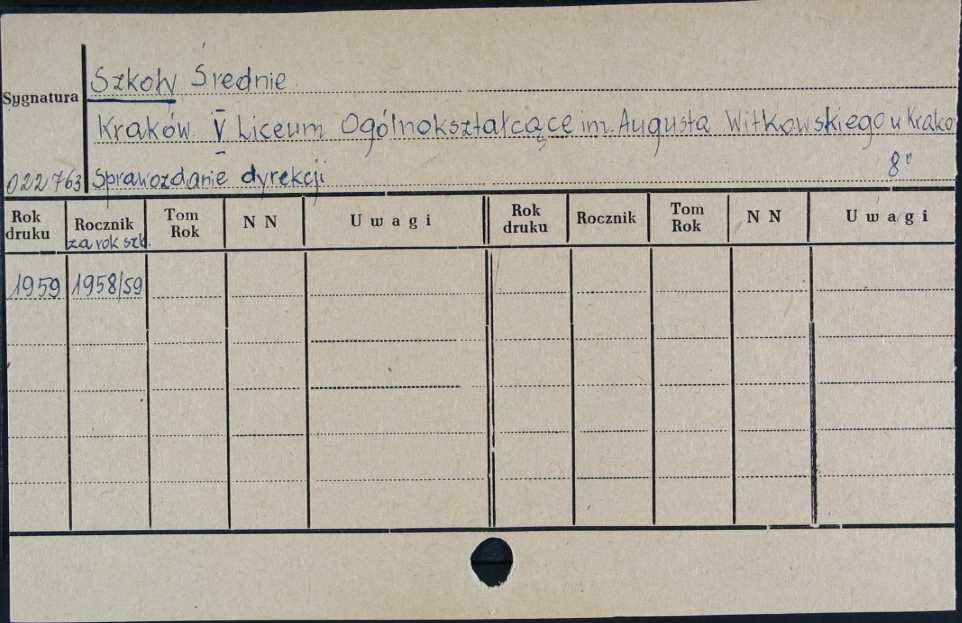 Szkoły Średnie
Sygnatura
Kraków. V Liceum Ogólnokształcące im. Augusta Witkowskiego w Krako
8°
022763 Sprawozdanie dyrekcji
Rok druku Rocznik za rok szk. Tom Rok N N Uwagi Rok druku Rocznik Tom Rok N N Uwagi
1959 1958/59